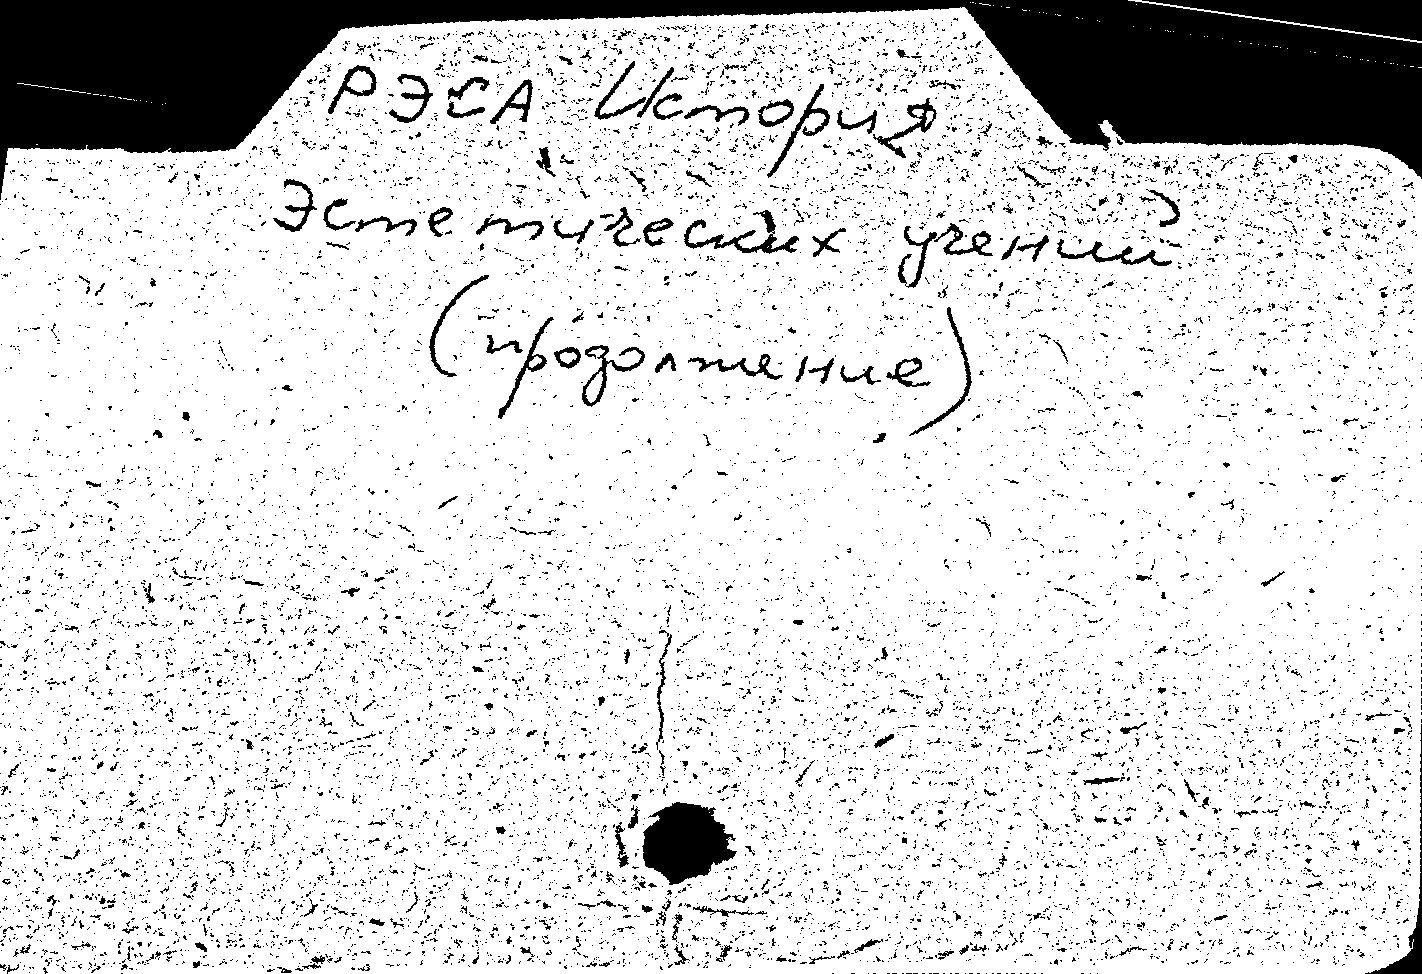 РЭСА История
Эстетических учений
(продолжение)